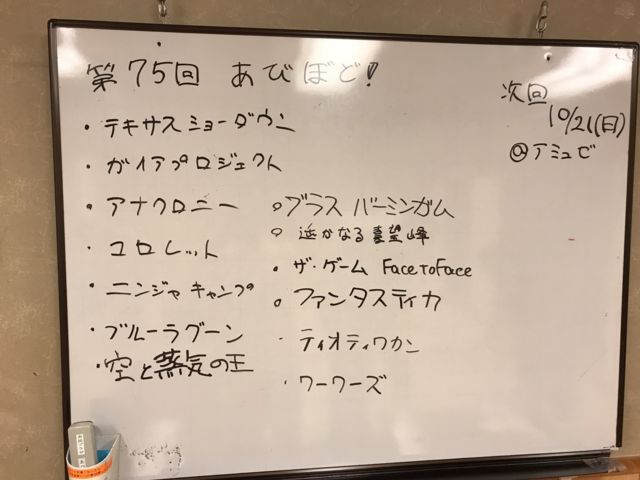 第75回 あびぼど!
・テキサスショーダウン
・ガイアプロジェクト
・アナクロニー
・コロレット
・ニンジャキャンプ
・ブルーラグーン
・空と蒸気の王
○ブラス バーミンガム
○遥かなる喜望峰
・ザ・ゲーム FacetoFace
○ファンタスティカ
・ティオティワカン
・ワーワーズ
次回
10/21(日)
@アミュゼ